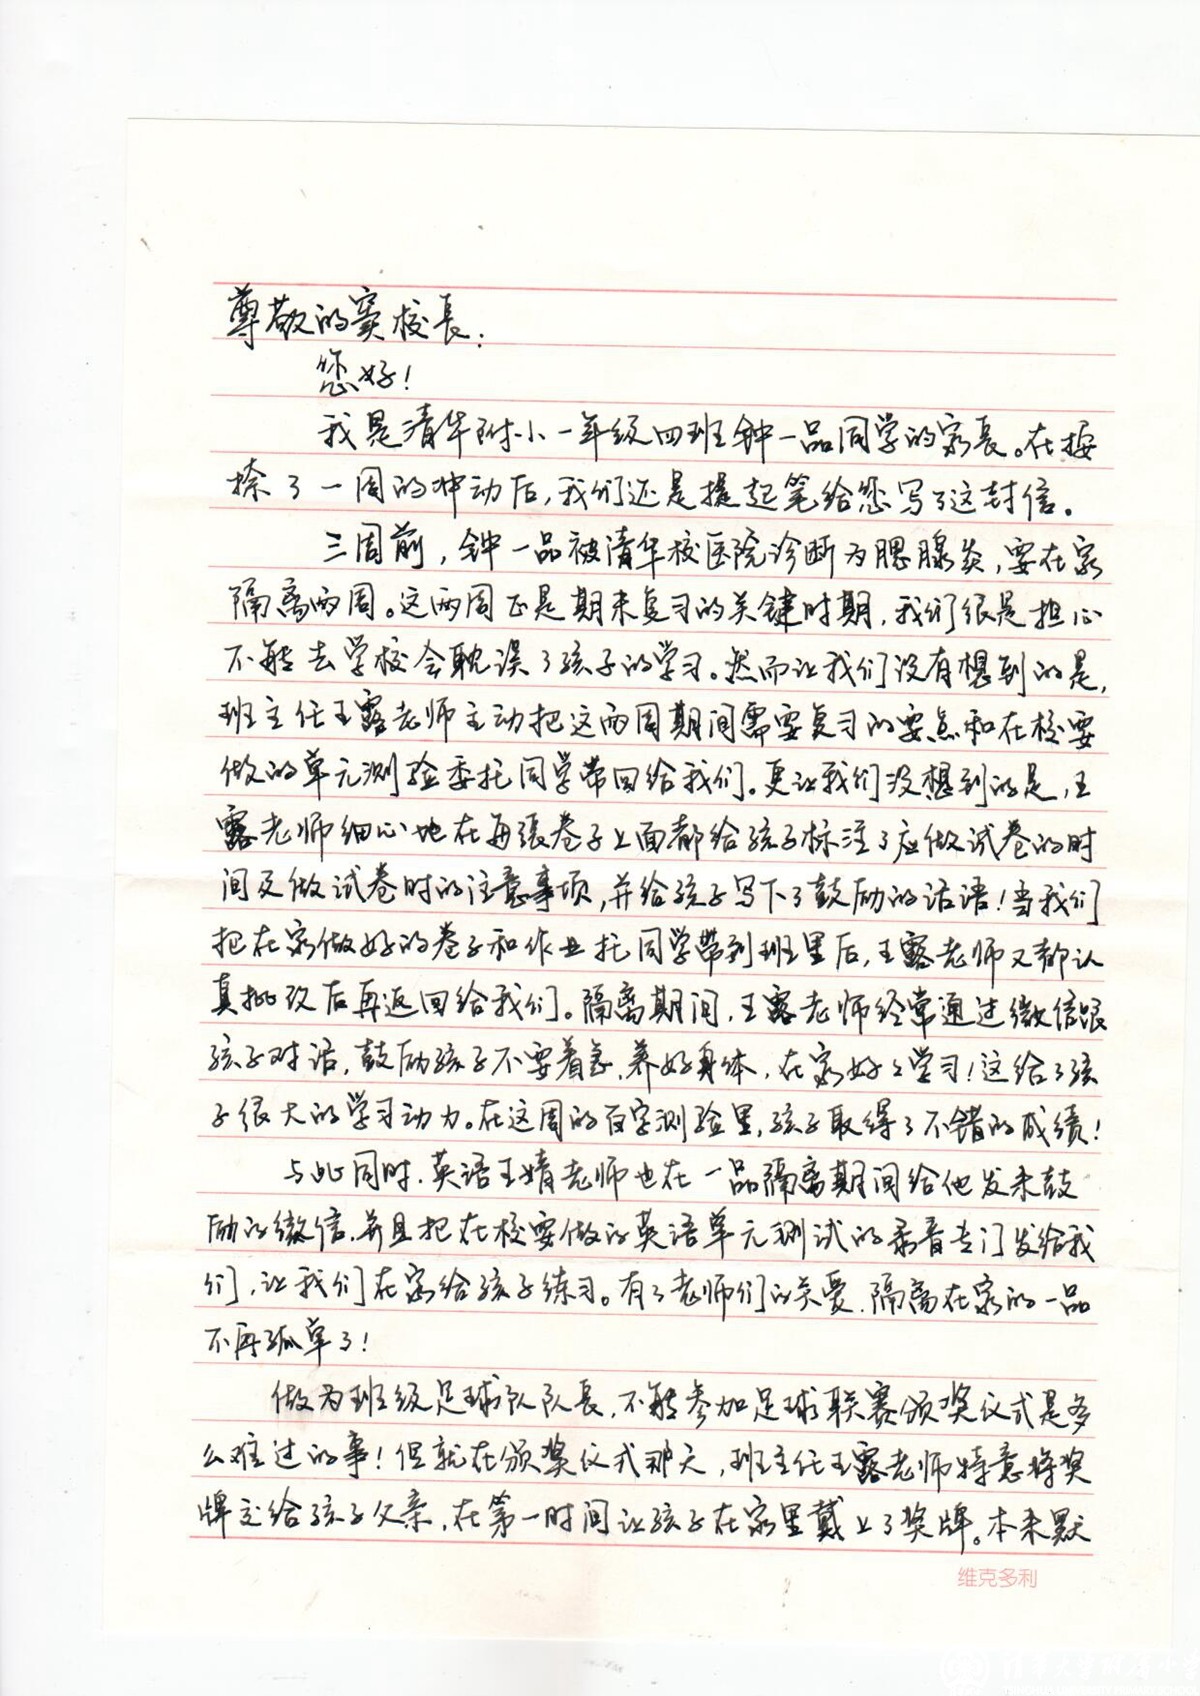 尊敬的窦校长：
您好！
我是清华附小一年级四班钟一品同学的家长。在按
捺了一周的冲动后，我们还是提起笔给您写了这封信。
三周前，钟一品被清华校医院诊断为腮腺炎，要在家
隔离两周。这两周正是期末复习的关键时期，我们很是担心
不能去学校会耽误了孩子的学习。然而让我们没有想到的是，
班主任王露老师主动把这两周期间需要复习的要点和在校要
做的单元测验委托同学带回给我们。更让我们没想到的是，王
露老师细心地在每张卷子上面都给孩子标注了应做试卷的时
间及做试卷时的注意事项，并给孩子写下了鼓励的话语！当我们
把在家做好的卷子和作业托同学带到班里后，王露老师又都认
真批改后再返回给我们。隔离期间，王露老师经常通过微信跟
孩子对话，鼓励孩子不要着急，养好身体，在家好好学习！这给了孩
子很大的学习动力。在这周的百字测验里，孩子取得了不错的成绩！
与此同时，英语王婧老师也在一品隔离期间给他发来鼓
励的微信，并且把在校要做的英语单元测试的录音专门发给我
们，让我们在家给孩子练习。有了老师们的关爱，隔离在家的一品
不再孤单了！
做为班级足球队队长，不能参加足球联赛颁奖仪式是多
么难过的事！但就在颁奖仪式那天，班主任王露老师特意将奖
牌交给孩子父亲，在第一时间让孩子在家里戴上了奖牌。本来默
维克多利
清华大学附属小学